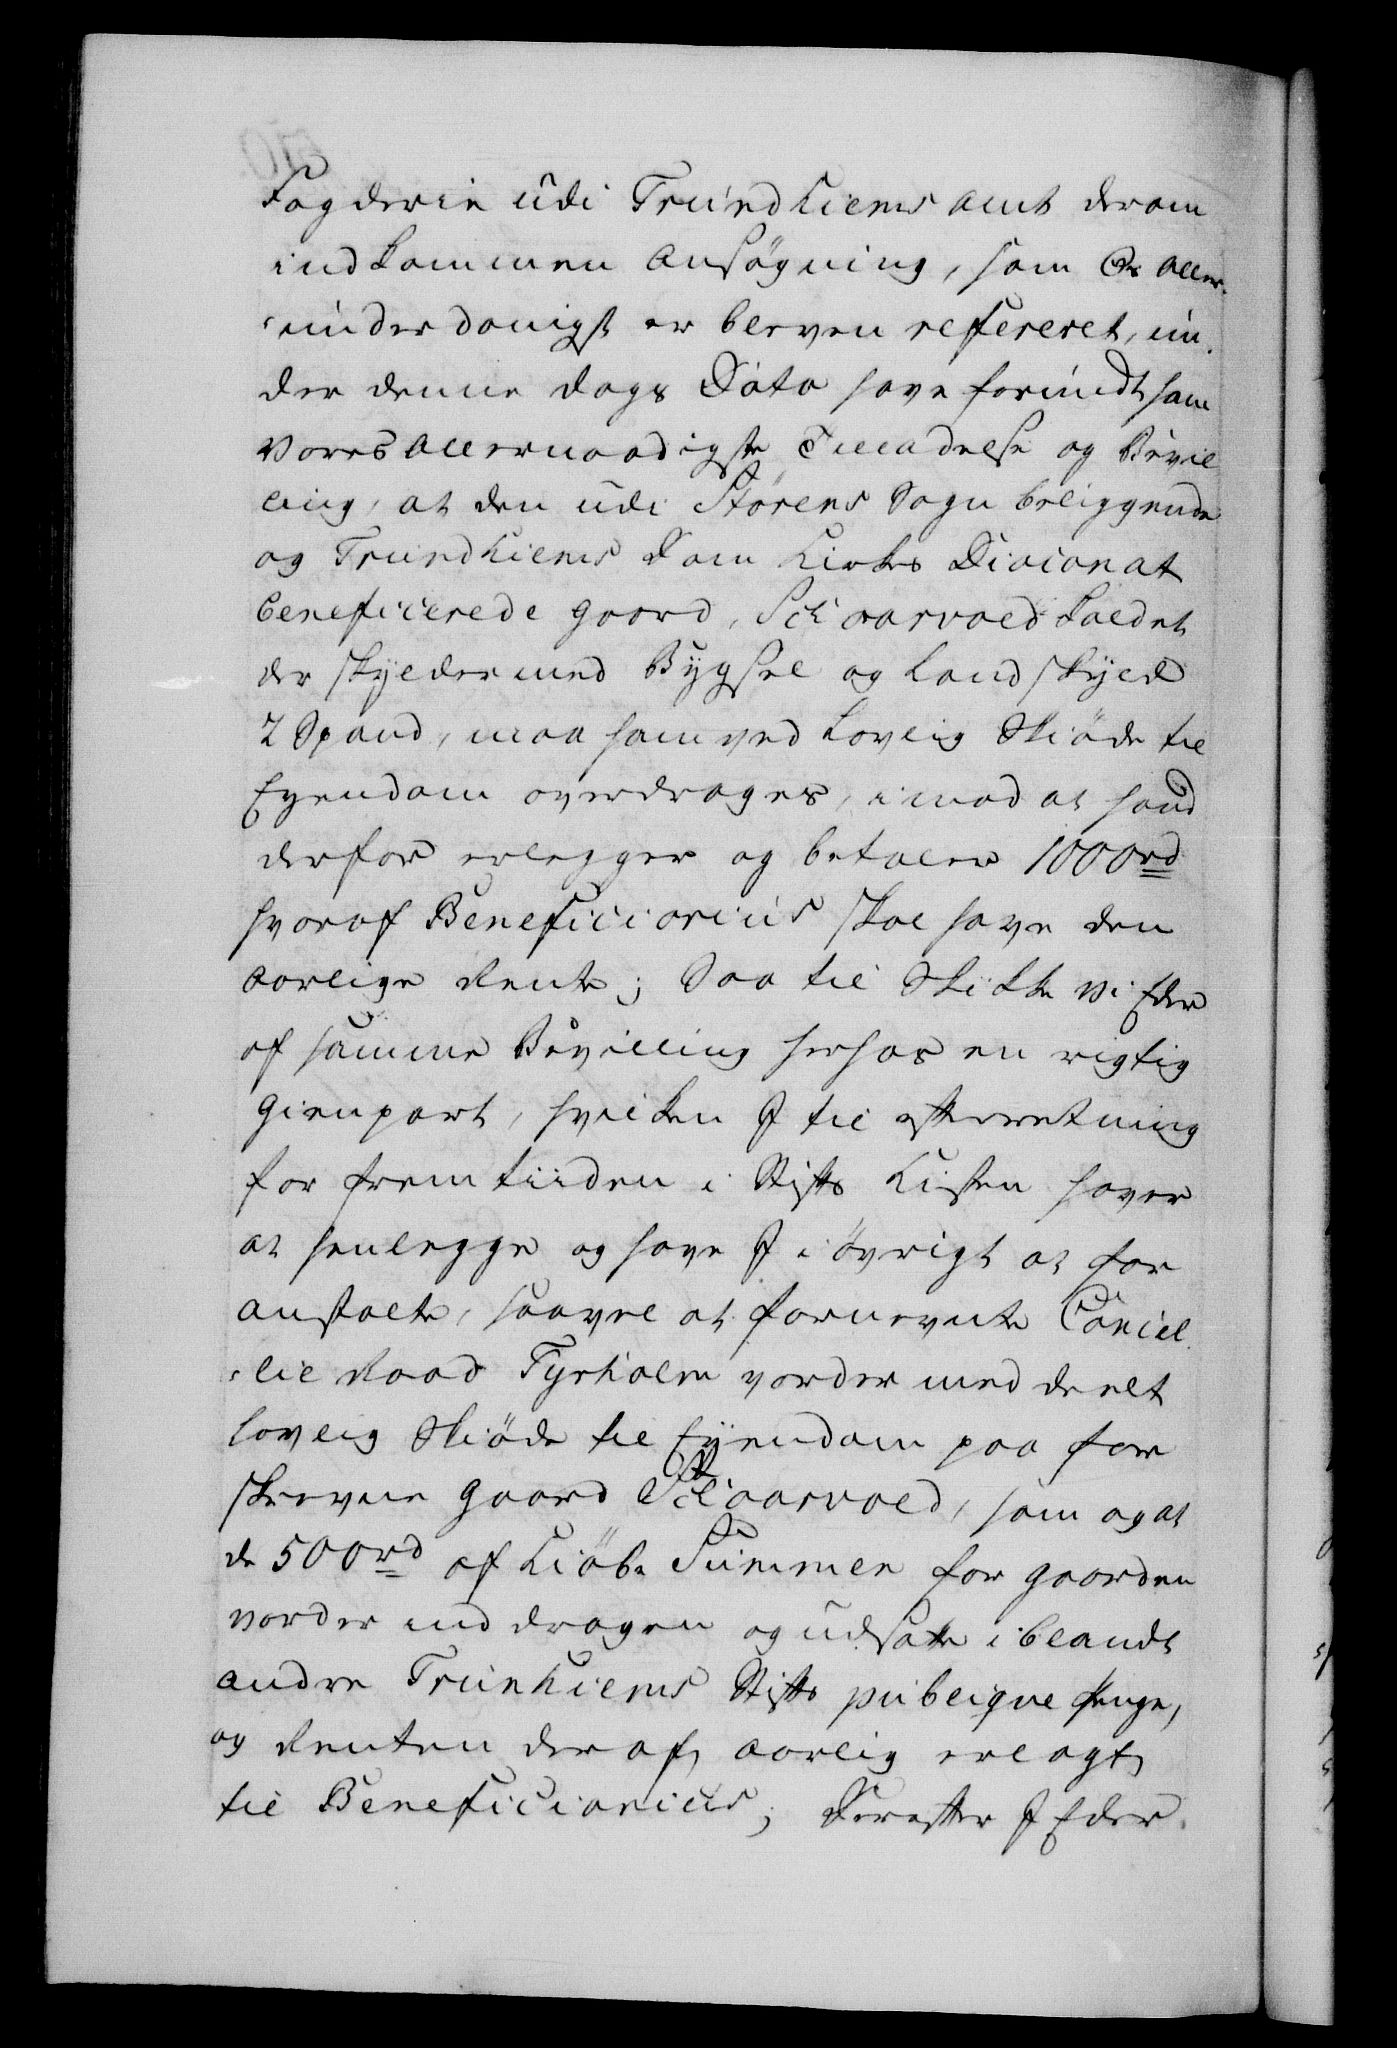 Fogderie udi Trundhiems Amt derom
indkommen Ansøgning, som Os Aller-
underdanigst er bleven refereret, un-
der denne Dags Dato have forundt ham
Vores Allernaadigste Tilladelse og Bevil
ling, at den udi Størens Sogn beliggende
og Trundhiems Dom Kirkes Diaconat
beneficerede Gaard, Schaarvold kaldet
der skylder med Bygsel og Landskyld
2 Spand, maa ham ved lovlig Skiøde til
Eyendom overdrages, imod at hand
derfor erlegger og betaler 1000 rd
hvoraf Beneficiarius skal have den
aarlige Rente; Saa tilskikke Vi Eder
af samme Bevilling herhos en rigtig
Gienpart, hvilken I til efterretning
for fremtiiden i Stifts Kisten haver
at henlegge og have I i øvrigt at for
anstalte, saavel at fornevnte Cancel
lie Raad Tyrholm vorder meddeelt
lovlig Skiøde til Eyendom paa for
skrevne Gaard Schaarvold, som og at
de 500 rd af Kiøbe Summen for Gaarden
vorder inddragen og udsatte iblandt
andre Trunhiems Stifts publique Penge,
og Renten deraf aarlig erlagt
til Beneficiarius; Derefter I Eder